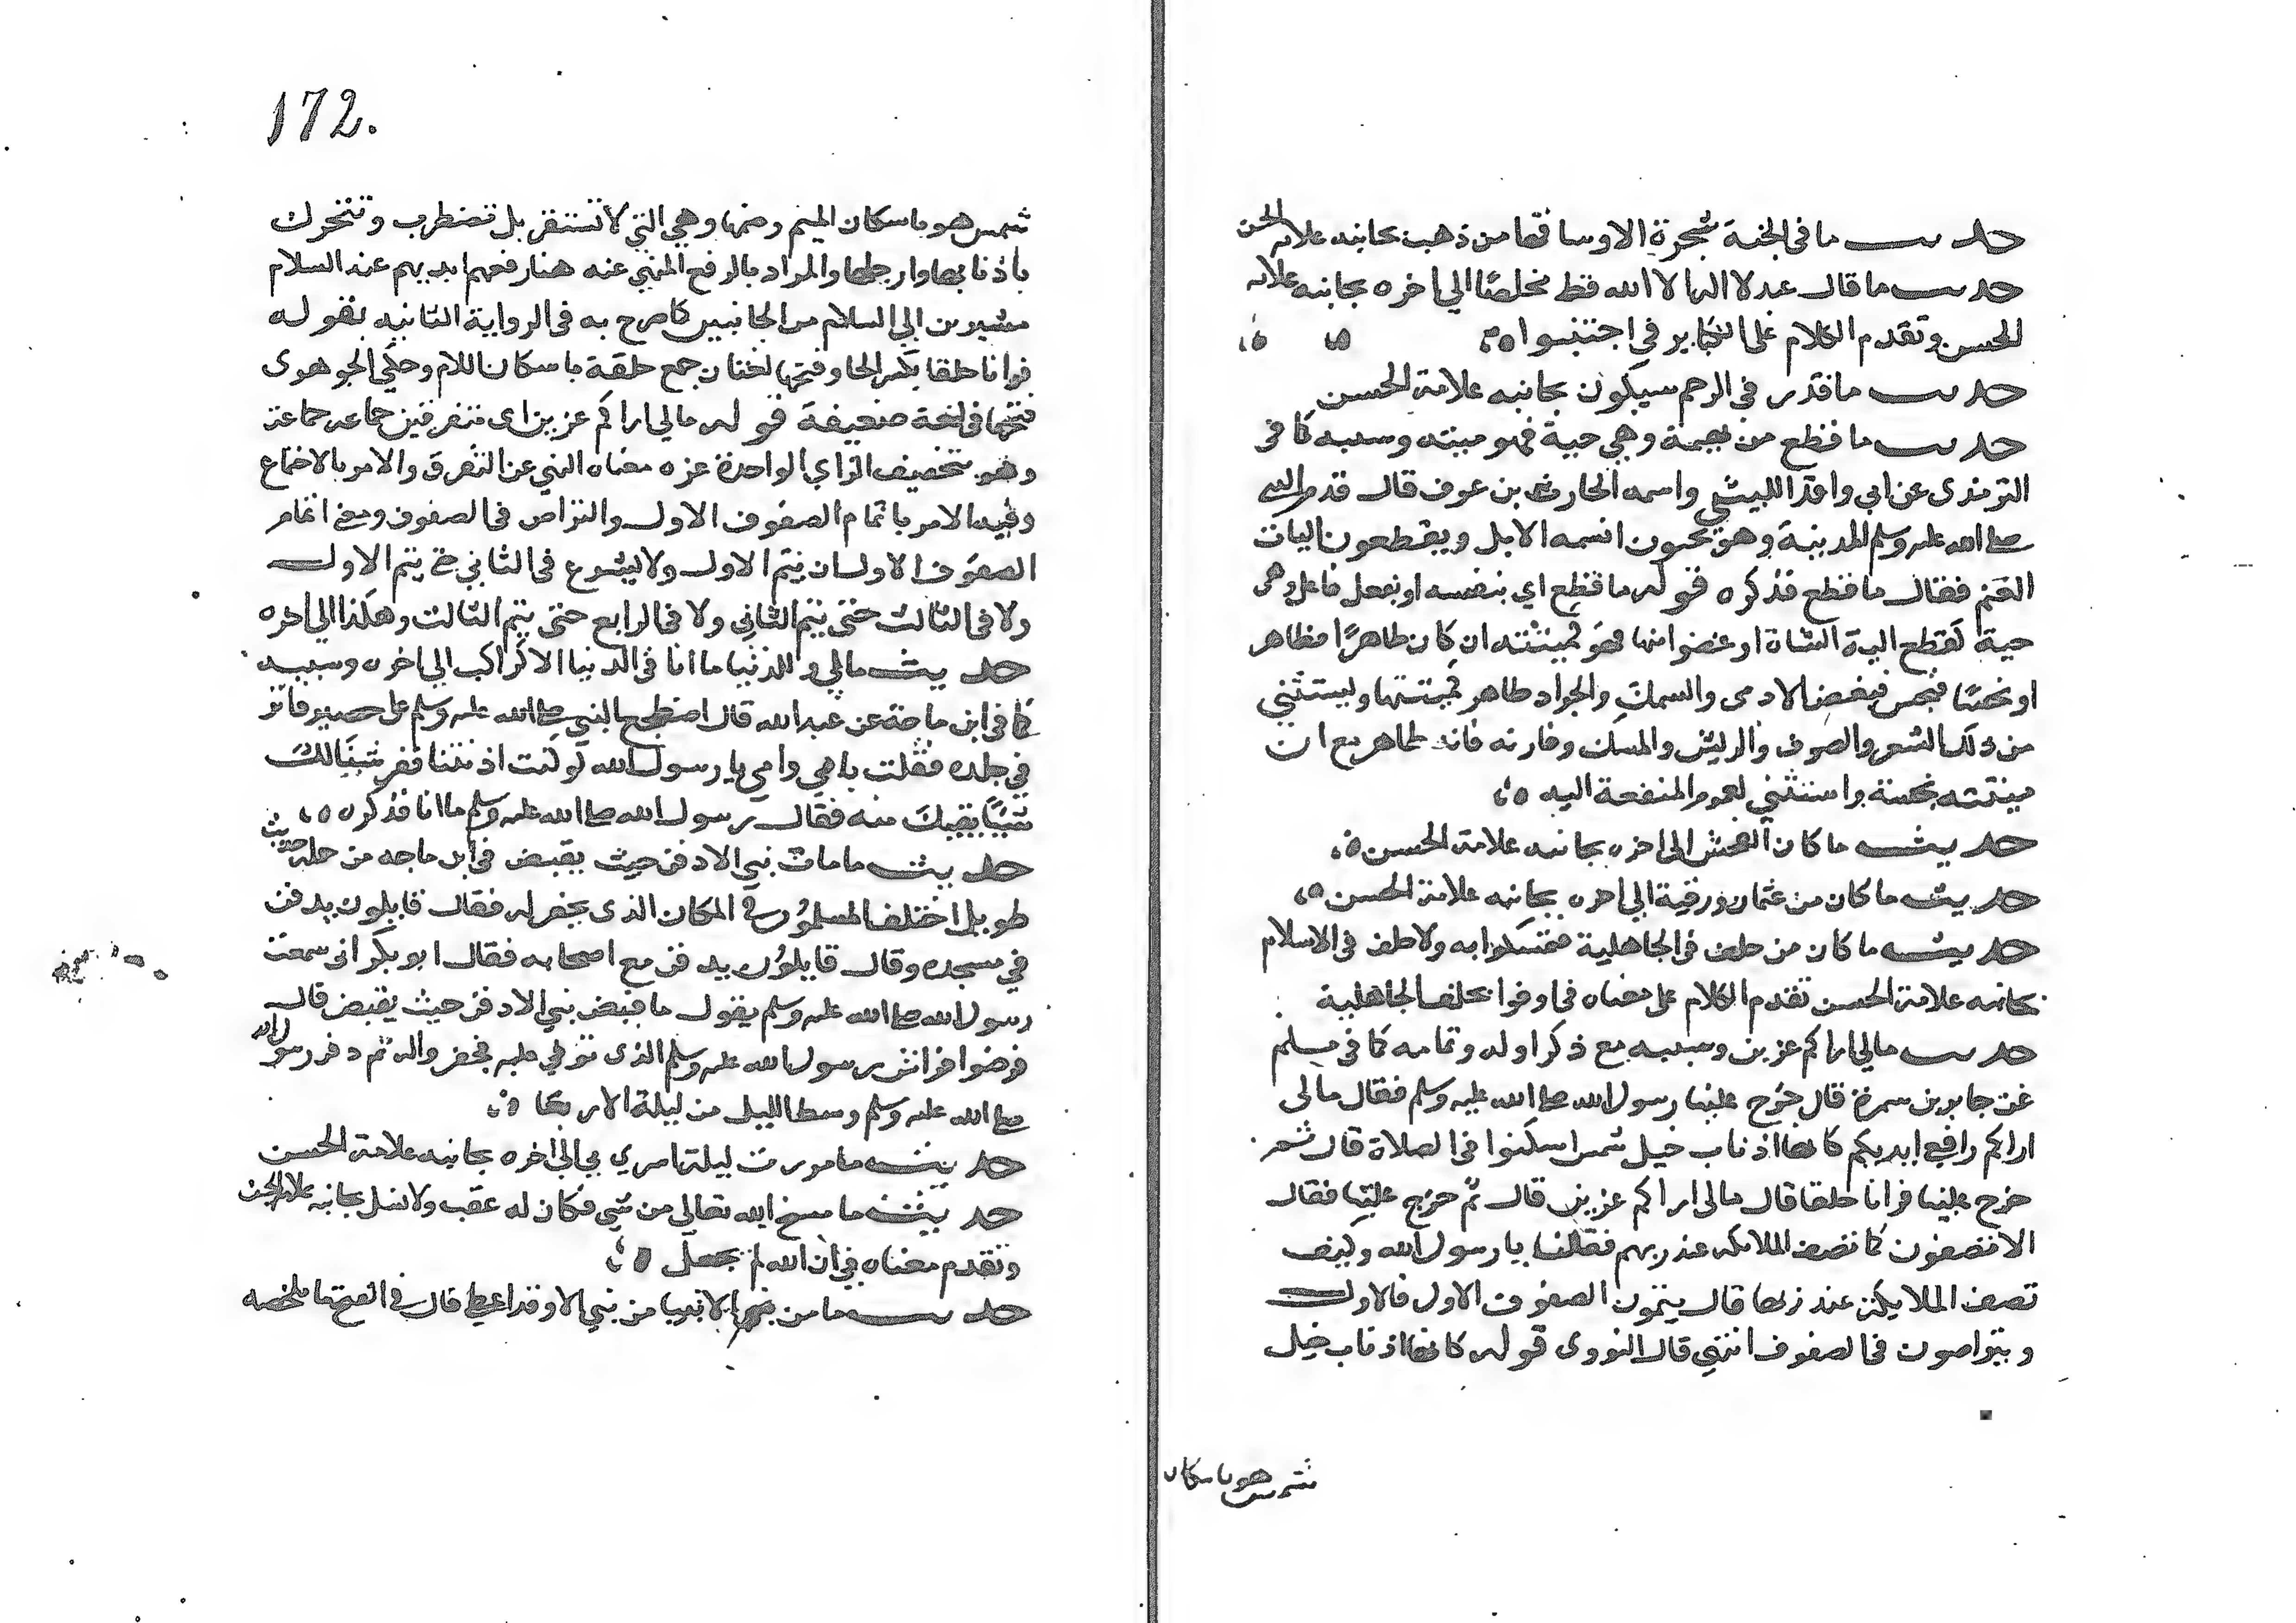 حديث ما في الجنة شجرة الا وساقها من ذهب بجانبه علامة الحسن
حديث ما قال عبد لا اله الا الله قط مخلصًا الي اخره بجانبه علامة
الحسن وتقدم الكلام على الكباير في اجتنبوا ه
حديث ما قدر في الرحم سيكون بجانبه علامة الحسن
حديث ما قطع من بهيمة وهي حية فهو ميتة وسببه كما في
الترمذي عن ابي واقد الليثي واسمه الحارث بن عوف قال قدم النبي
صلى الله عليه وسلم المدينة وهم يجبون اسنمة الابل ويقطعون اليات
الغنم فقال ما قطع فذكره قوله ما قطع اي بنفسه او بفعل فاعل وهي
حية كقطع الية الشاة او عضوا منها فهو كميتته ان كان طاهرًا فطاهر
او نجسًا فنجس فبعض الادمى والسمك والجراد طاهر كميتتها ويستثني
من ذلك الشعر والصوف والريش والمسك وفارته فانه طاهر مع ان
ميتته نجسة واستثني لعموم المنفعة اليه ه
حديث ما كان الفحش الى اخره بجانبه علامة الحسن ه
حديث ما كان من عثمان ورقية الي اخره بجانبه علامة الحسن ه
حديث ما كان من حلف في الجاهلية فتمسكوا به ولا حلف في الاسلام
بجانبه علامة الحسن تقدم الكلام على معناه في اوفوا بحلف الجاهلية
حديث مالي اراكم عزين وسببه مع ذكر اوله وتمامه كما في مسلم
عن جابر بن سمرة قال خرج علينا رسول الله صلى الله عليه وسلم فقال مالى
اراكم رافعي ايديكم كانها اذناب خيل شمس اسكنوا في الصلاة قال ثم
خرج علينا فرانا حلقا قال مالى اراكم عزين قال ثم خرج علينا فقال
الا تصفون كما تصف الملايكه عند ربهم فقلنا يا رسول الله وكيف
تصف الملايكة عند ربها قال يتمون الصفوف الاول فالاول
ويتراصون في الصفوف انتهي قال النووى قوله كانها اذناب خيل
شمس هو باسكان
172.
شمس هو باسكان الميم وضمها وهي التي لا تستقر بل تضطرب وتتحرك
باذنابها وارجلها والمراد بالرفع المنهي عنه هنا رفعهم ايديهم عند السلام
مشيرين الي السلام من الجانبين كما صرح به في الرواية الثانيه بقوله
فرانا حلقا بكسر الحا وفتحها لغتان جمع حلقة باسكان اللام وحكي الجوهرى
فتحها في لغة ضعيفة قوله مالي اراكم عزين اى متفرقين جماعه جماعة
وهو بتخفيف الزاي الواحدة عزه معناه النهي عن التفرق والامر بالاجتماع
وفيه الامر باتمام الصفوف الاول والتراص في الصفوف ومعنى اتمام
الصفوف الاول ان يتم الاول ولا يشرع في الثاني حتى يتم الاول
ولا في الثالث حتى يتم الثاني ولا في الرابع حتى يتم الثالث وهكذا الي اخره
حديث مالي وللدنيا ما انا في الدنيا الا كراكب الي اخره وسببه
كما في ابن ماجة عن عبد الله قال اضطجع النبي صلى الله عليه وسلم على حصير فاثر
في جلده فقلت بابي وامي يا رسول الله لو كنت اذنتنا نفرش لك
شيئا يقيك منه فقال رسول الله صلى الله عليه وسلم ما انا فذكره ه
حديث ما مات نبي الا دفن حيث يقبض في ابن ماجه من جملة حديث
طويل اختلف المسلمون في المكان الذى يحفر له فقال قايلون يدفن
في مسجده وقال قايلون يدفن مع اصحابه فقال ابو بكر انى سمعت
رسول الله صلى الله عليه وسلم يقول ما قبض نبي الا دفن حيث يقبض قال
فرفعوا فراش رسول الله عليه وسلم الذى توفي عليه فحفر واله ثم دفن رسول الله
صلى الله عليه وسلم وسط الليل من ليلة الاربعا ه
حديث ما مررت ليلة اسري بي الي اخره بجانبه علامة الحسن
حديث ما مسخ الله تعالى من شي فكان له عقب ولا نسل بجانبه علامة الحسن
وتقدم معناه في ان الله لم يجعل ه
حديث ما من الانبيا من نبي الا وقد اعطي قال في الفتح ما ملخصه